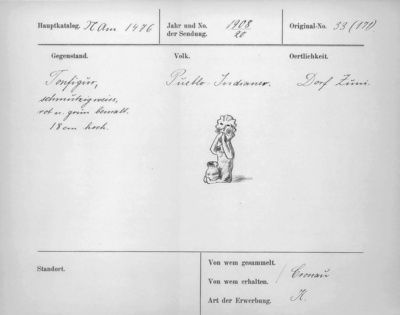 Hauptkatalog. N Am 1476
Jahr und No. der Sendung. 1908 20
Original-No. 33 (171)
Gegenstand. Volk. Oertlichkeit.
Tonfigur, Pueblo-Indianer. Dorf Zuni.
schmutzigweiss,
rot u. grün bemalt.
18 cm hoch.
Standort.
Von wem gesammelt.
Von wem erhalten. Cronau
Art der Erwerbung. K